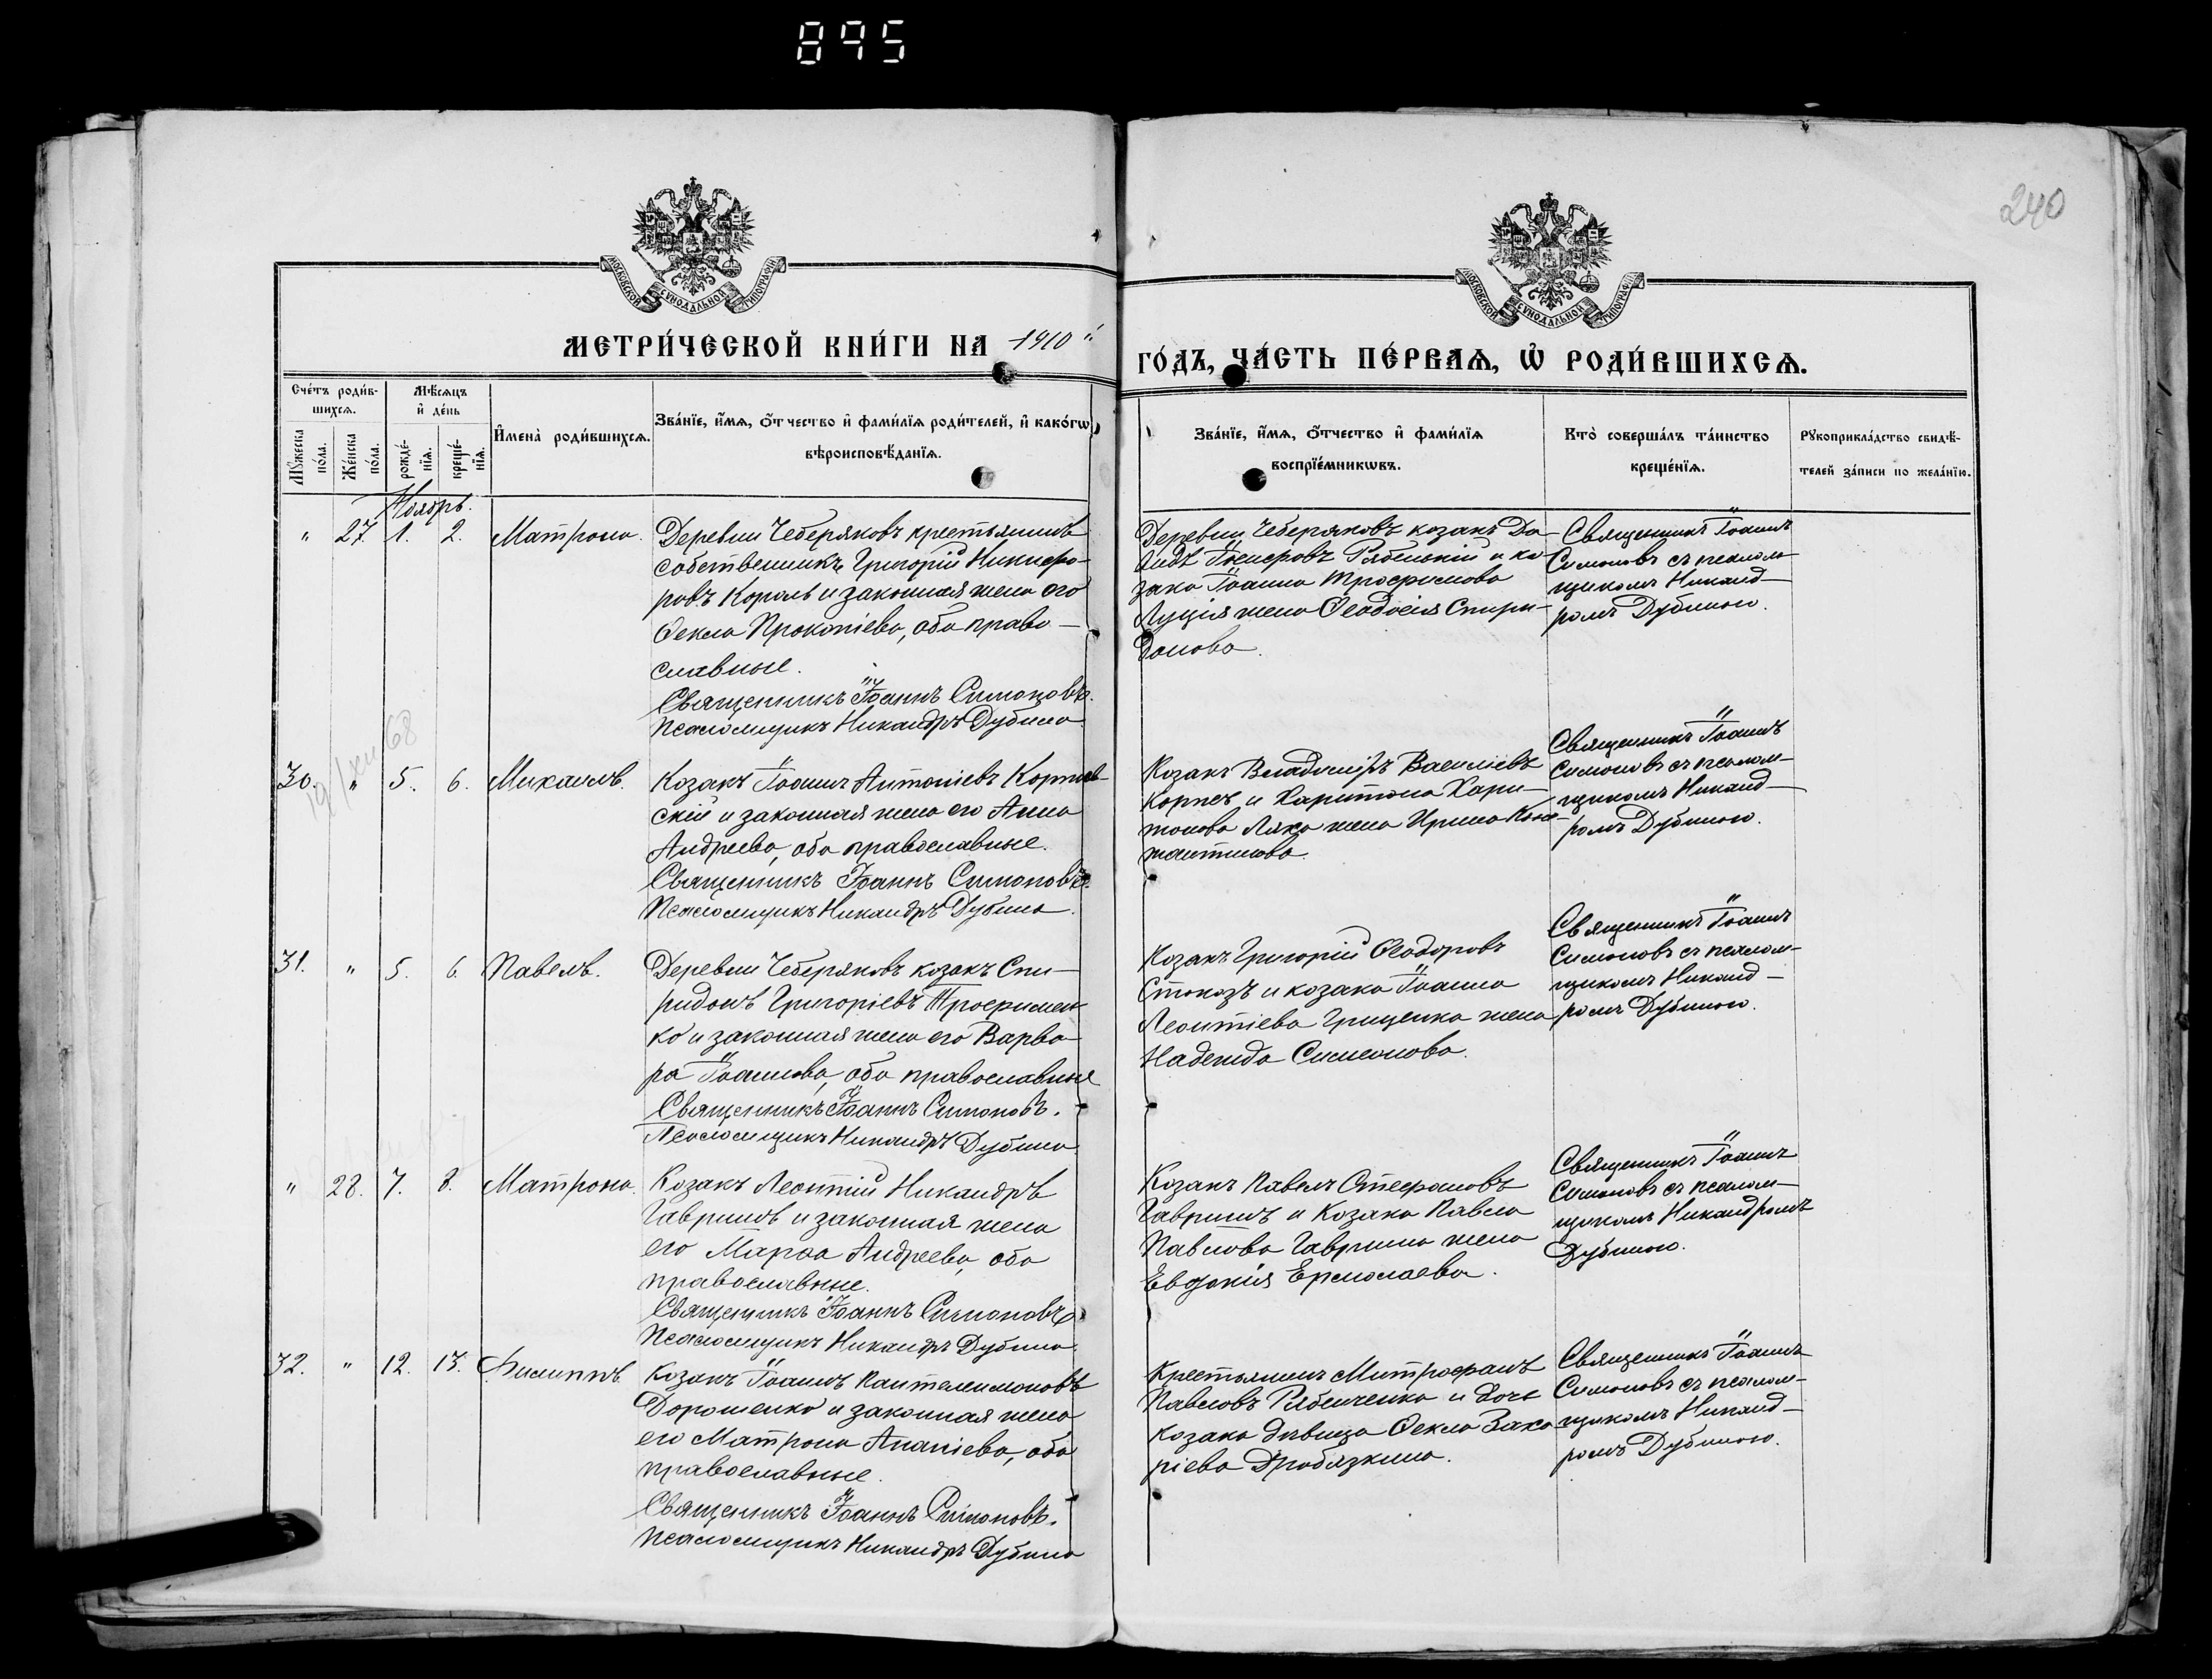 895
240
МОСКОВСКОЙ СѴНОДАЛЬНОЙ ТИПОГРАФІИ
МОСКОВСКОЙ СѴНОДАЛЬНОЙ ТИПОГРАФІИ
МЕТРИ́ЧЕСКОЙ КНИ́ГИ НА 1910
ГО́ДЪ, ЧА́СТЬ ПЕ́РВАѦ, Ѡ҆ РОДИ́ВШИХСѦ.
Сче́тъ роди́в-
шихсѧ.
Мꙋ́жеска
по́ла.
Же́нска
по́ла.
Мѣ́сѧцъ
и҆ де́нь
рожде́-
нїѧ.
креще́-
нїѧ.
И҆мена̀ роди́вшихсѧ.
Зва́нїе, и҆́мѧ, ѻ҆́тчество и҆ фами́лїѧ роди́телей, и҆ како́гѡ
вѣроисповѣ́данїѧ.
Зва́нїе, и҆́мѧ, ѻ҆́тчество и҆ фами́лїѧ
воспрїе́мникѡвъ.
Кто̀ соверша́лъ та́инство
креще́нїѧ.
Рꙋкоприкла́дство свидѣ́-
телей за́писи по жела́нїю.
Ноябрь.
" 27. 1. 2. Матрона.
Деревни Чеберяковъ крестьянинъ
собственникъ Григорій Никифо-
ровъ Король и законная жена его
Ѳекла Прокопіева, оба право-
славные.
Священникъ Іоаннъ Симоновъ.
Псаломщикъ Никандръ Дубина.
Деревни Чеберяковъ козакъ Да-
видъ Рябенькій и ко-
зака Іоанна Трофимова
жена Ѳеодосія Спири-
донова.
Священникъ Іоаннъ
Симоновъ съ псалом-
щикомъ Никанд-
ромъ Дубиною.
30. " 5. 6. Михаилъ.
Козакъ Іоаннъ Антоніевъ
скій и законная жена его Анна
Андреева, оба православные.
Священникъ Іоаннъ Симоновъ.
Псаломщикъ Никандръ Дубина.
Козакъ Владиміръ Василіевъ
Корнѣй и Харитона Хари-
тонова Ляха жена Ирина Конс-
тантинова.
Священникъ Іоаннъ
Симоновъ съ псалом-
щикомъ Никанд-
ромъ Дубиною.
31. " 5. 6. Павелъ.
Деревни Чеберяковъ козакъ Спи-
ридонъ Григоріевъ Трофимен-
ко и законная жена его Варва-
ра Іоаннова, оба православные
Священникъ Іоаннъ Симоновъ.
Псаломщикъ Никандръ Дубина
Козакъ Григорій Ѳеодоровъ
Стокозъ и козака Іоанна
Леонтіева Грищенка жена
Надежда Симеонова.
Священникъ Іоаннъ
Симоновъ съ псалом-
щикомъ Никанд-
ромъ Дубиною.
" 28. 7. 8. Матрона.
Козакъ Леонтій Никандръ
Гавришъ и законная жена
его Марѳа Андреева, оба
православные.
Священникъ Іоаннъ Симоновъ
Псаломщикъ Никандръ Дубина.
Козакъ Павелъ Стефановъ
Гавришъ и Козака Павла
Павлова Гавриша жена
Евдокія Ермолаева.
Священникъ Іоаннъ
Симоновъ съ псалом-
щикомъ Никандромъ
Дубиною.
32. " 12. 13. Филиппъ.
Козакъ Іоаннъ Пантелеимоновъ
Дорошенко и законная жена
его Матрона Ананіева, оба
православные.
Священникъ Іоаннъ Симоновъ.
Псаломщикъ Никандръ Дубина
Крестьянинъ Митрофанъ
Павловъ Рябенченко и дочь
козака дѣвица Ѳекла Заха-
ріева Дробязкина.
Священникъ Іоаннъ
Симоновъ съ псалом-
щикомъ Никанд-
ромъ Дубиною.